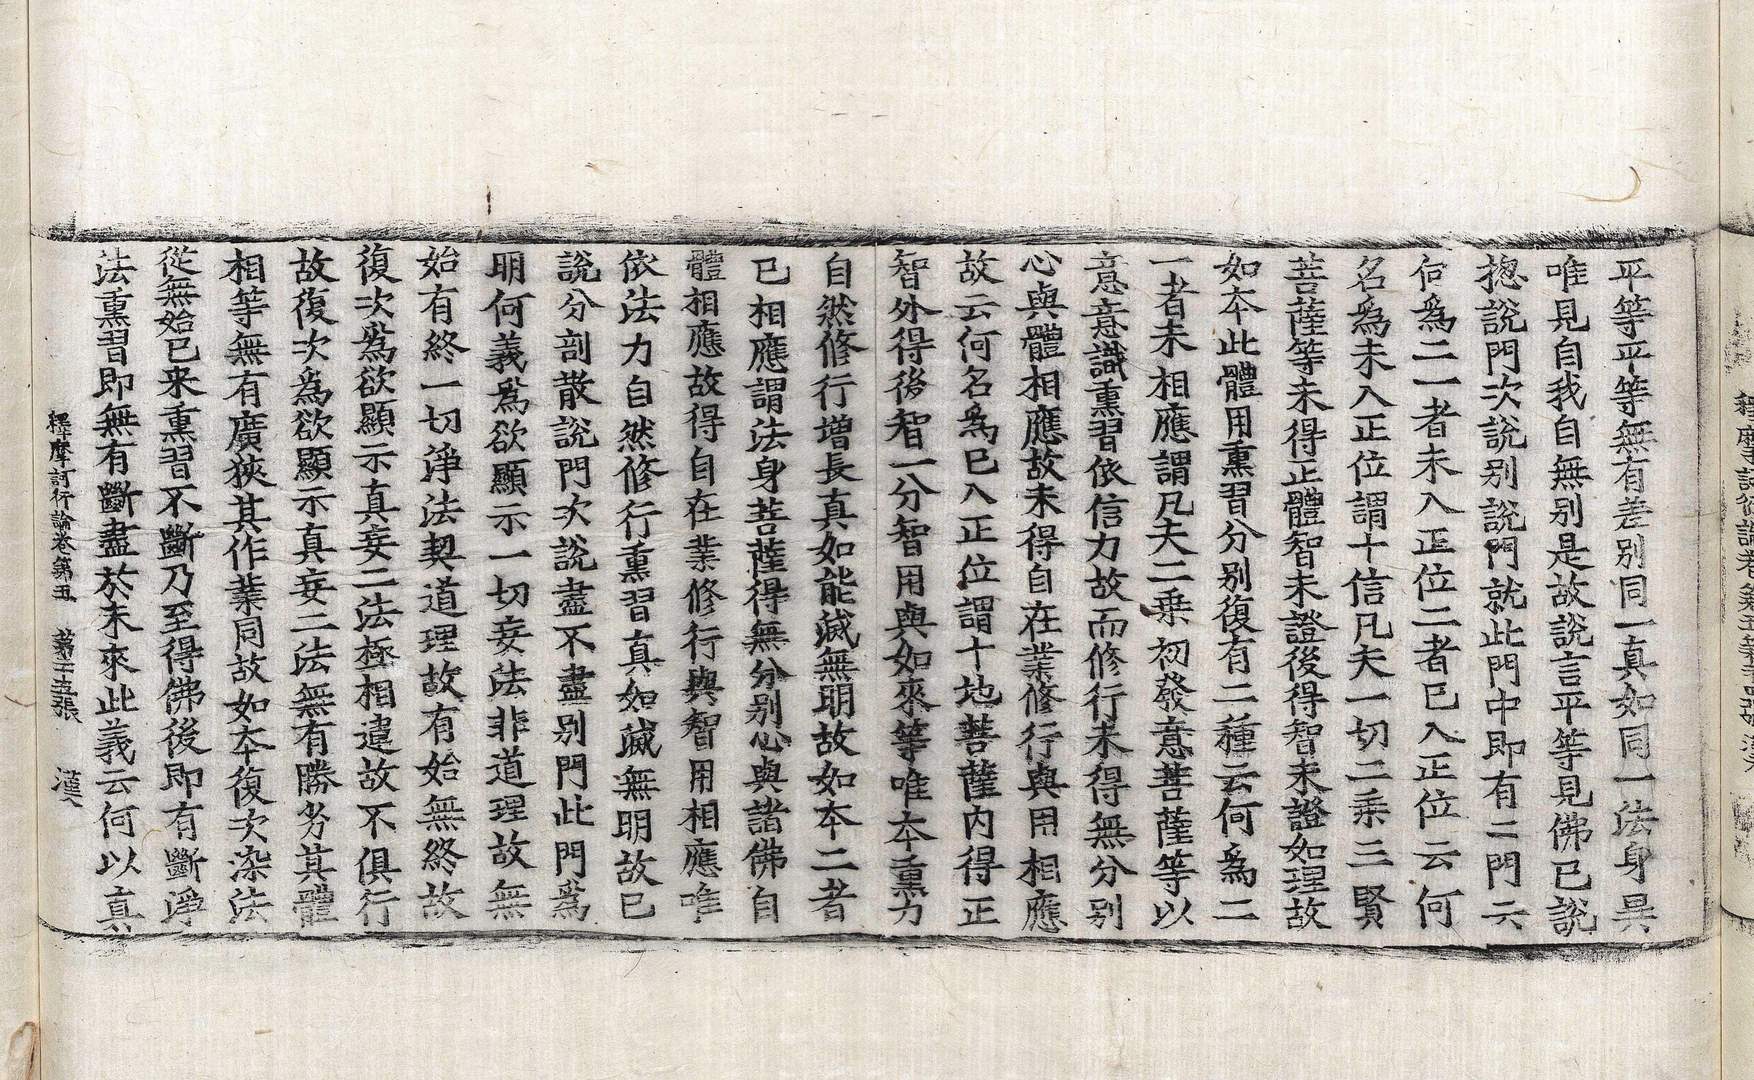 平等平等無有差别同一真如同一法身是
唯見自我自無别是故說言平等見佛已說
揔說門次說别說門就此門中即有二門云
何爲二一者未入正位二者已入正位云何
名爲未入正位謂十信凡夫一切二乘三賢
菩薩等未得正體智未證後得智未證如理故
如夲此體用熏習分别復有二種云何爲二
一者未相應謂凡夫二乘初發意菩薩等以
意意識熏習依信力故而修行未得無分别
心與體相應故未得自在業修行與用相應
故云何名爲已入正位謂十地菩薩内得正
智外得後智一分智用與如來等唯夲熏力
自然修行增長真如能滅無明故如夲二者
已相應謂法身菩薩得無分别心與諸佛自
體相應故得自在業修行與智用相應唯
依法力自然修行熏習真如滅無明故已
說分剖散說門次說盡不盡别門此門爲
明何義爲欲顯示一切妄法非道理故無
始有終一切淨法契道理故有始無終故
復次爲欲顯示真妄二法極相違故不俱行
故復次爲欲顯示真妄二法無有勝劣其體
相等無有廣狹其作業同故如夲復次染法
從無始已来熏習不斷乃至得佛後即有斷淨
法熏習即無有斷盡於未來此義云何以真
釋摩訶衍論卷第五 第二十五張 漢